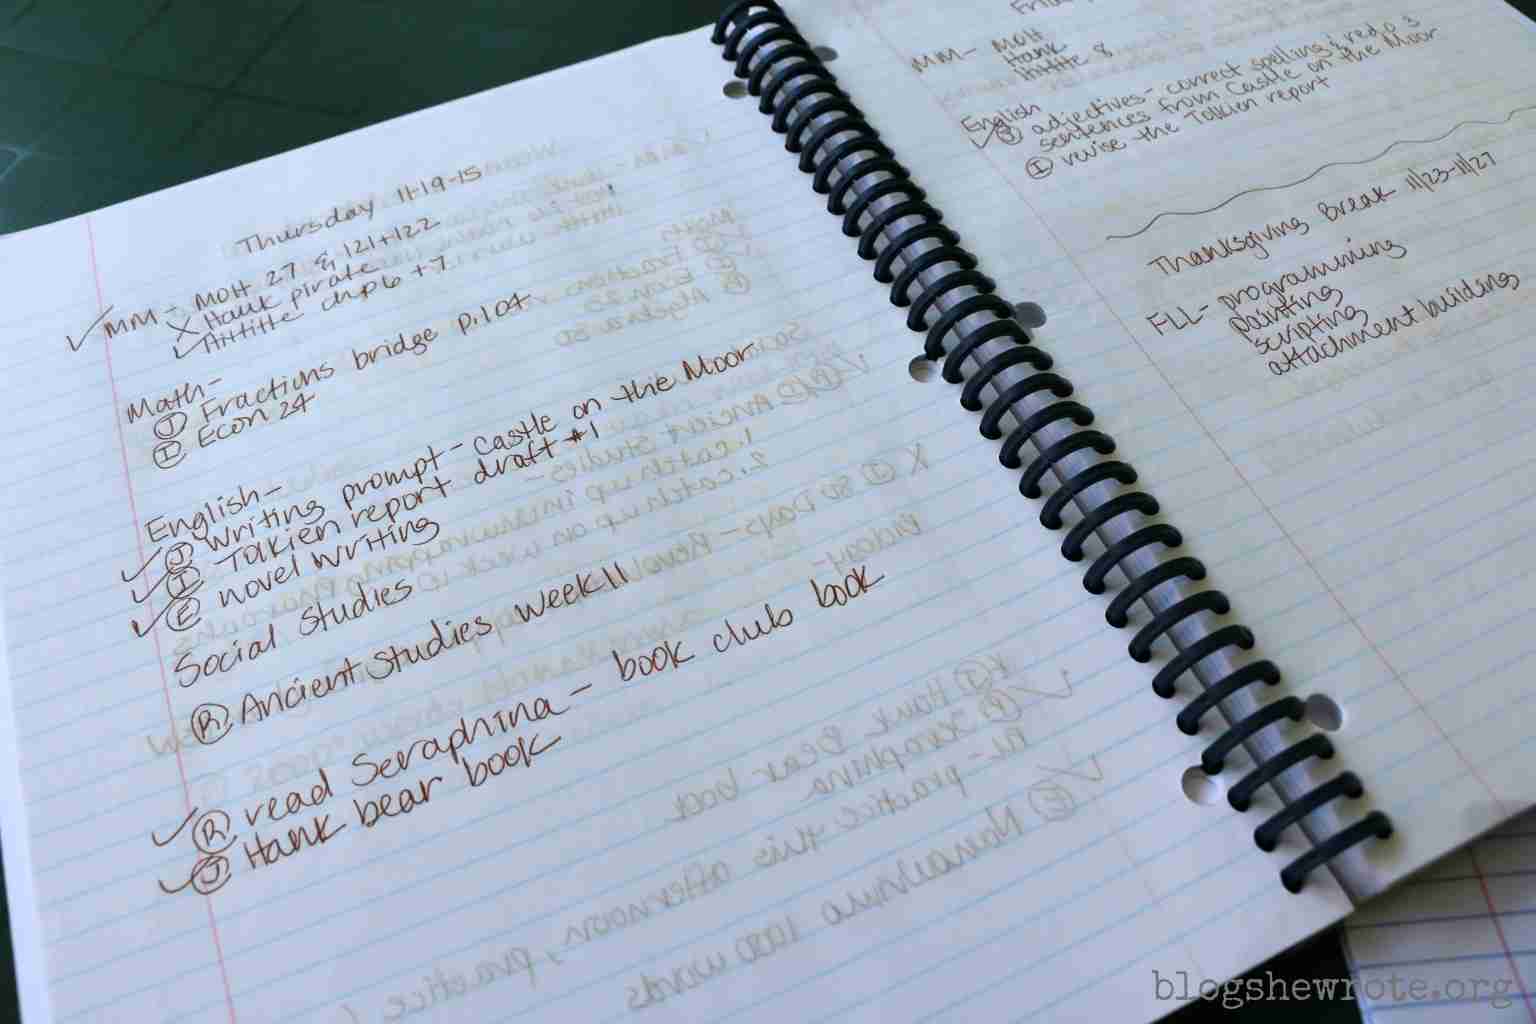 Thursday 11-19-15
MM - MOH 27 & 121+122
Hank pirate
Hittite chp 6 + 7
Math-
J Fractions bridge p.104
I Econ 24
English-
J Writing prompt - Castle on the Moor
I Tolkien report draft #1
E novel writing
Social Studies
R Ancient Studies week 11
R read Seraphina - book club book
J Hank bear book
MM - MOH
Hank
Hittite 8
English
J adjectives - correct spelling & redo 3
sentences from Castle on the Moor
I revise the Tolkien report
Thanksgiving Break 11/23-11/27
FLL - programming
painting
scripting
attachment building
blogshewrote.org